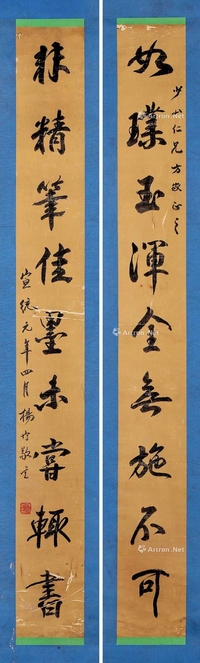 少山仁兄方家正之
如璞玉渾金無施不可
非精筆佳墨未嘗輒書
宣統元年四月楊守敬
Artron.Net
Artron.Net
Artron.Net
Artron.Net